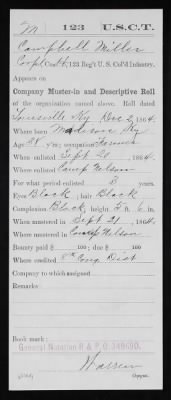 M | 123 | U.S.C.T.
Campbell Miller
Corpl Co. H, 123 Reg't U. S. Col'd Infantry.
Appears on
Company Muster-in and Descriptive Roll
of the organization named above. Roll dated
Louisville Ky Dec 2, 1864.
Where born Madison Ky
Age 28 y'rs; occupation Farmer
When enlisted Sept 20, 1864.
Where enlisted Camp Nelson
For what period enlisted 3 years.
Eyes Black; hair Black
Complexion Black; height 5 ft. 6 in.
When mustered in Sept 21, 1864.
Where mustered in Camp Nelson
Bounty paid $ 100; due $ 100
Where credited 8th Cong Dist
Company to which assigned
Remarks:
Book mark:
General Notation R & P, O.
Copyist.